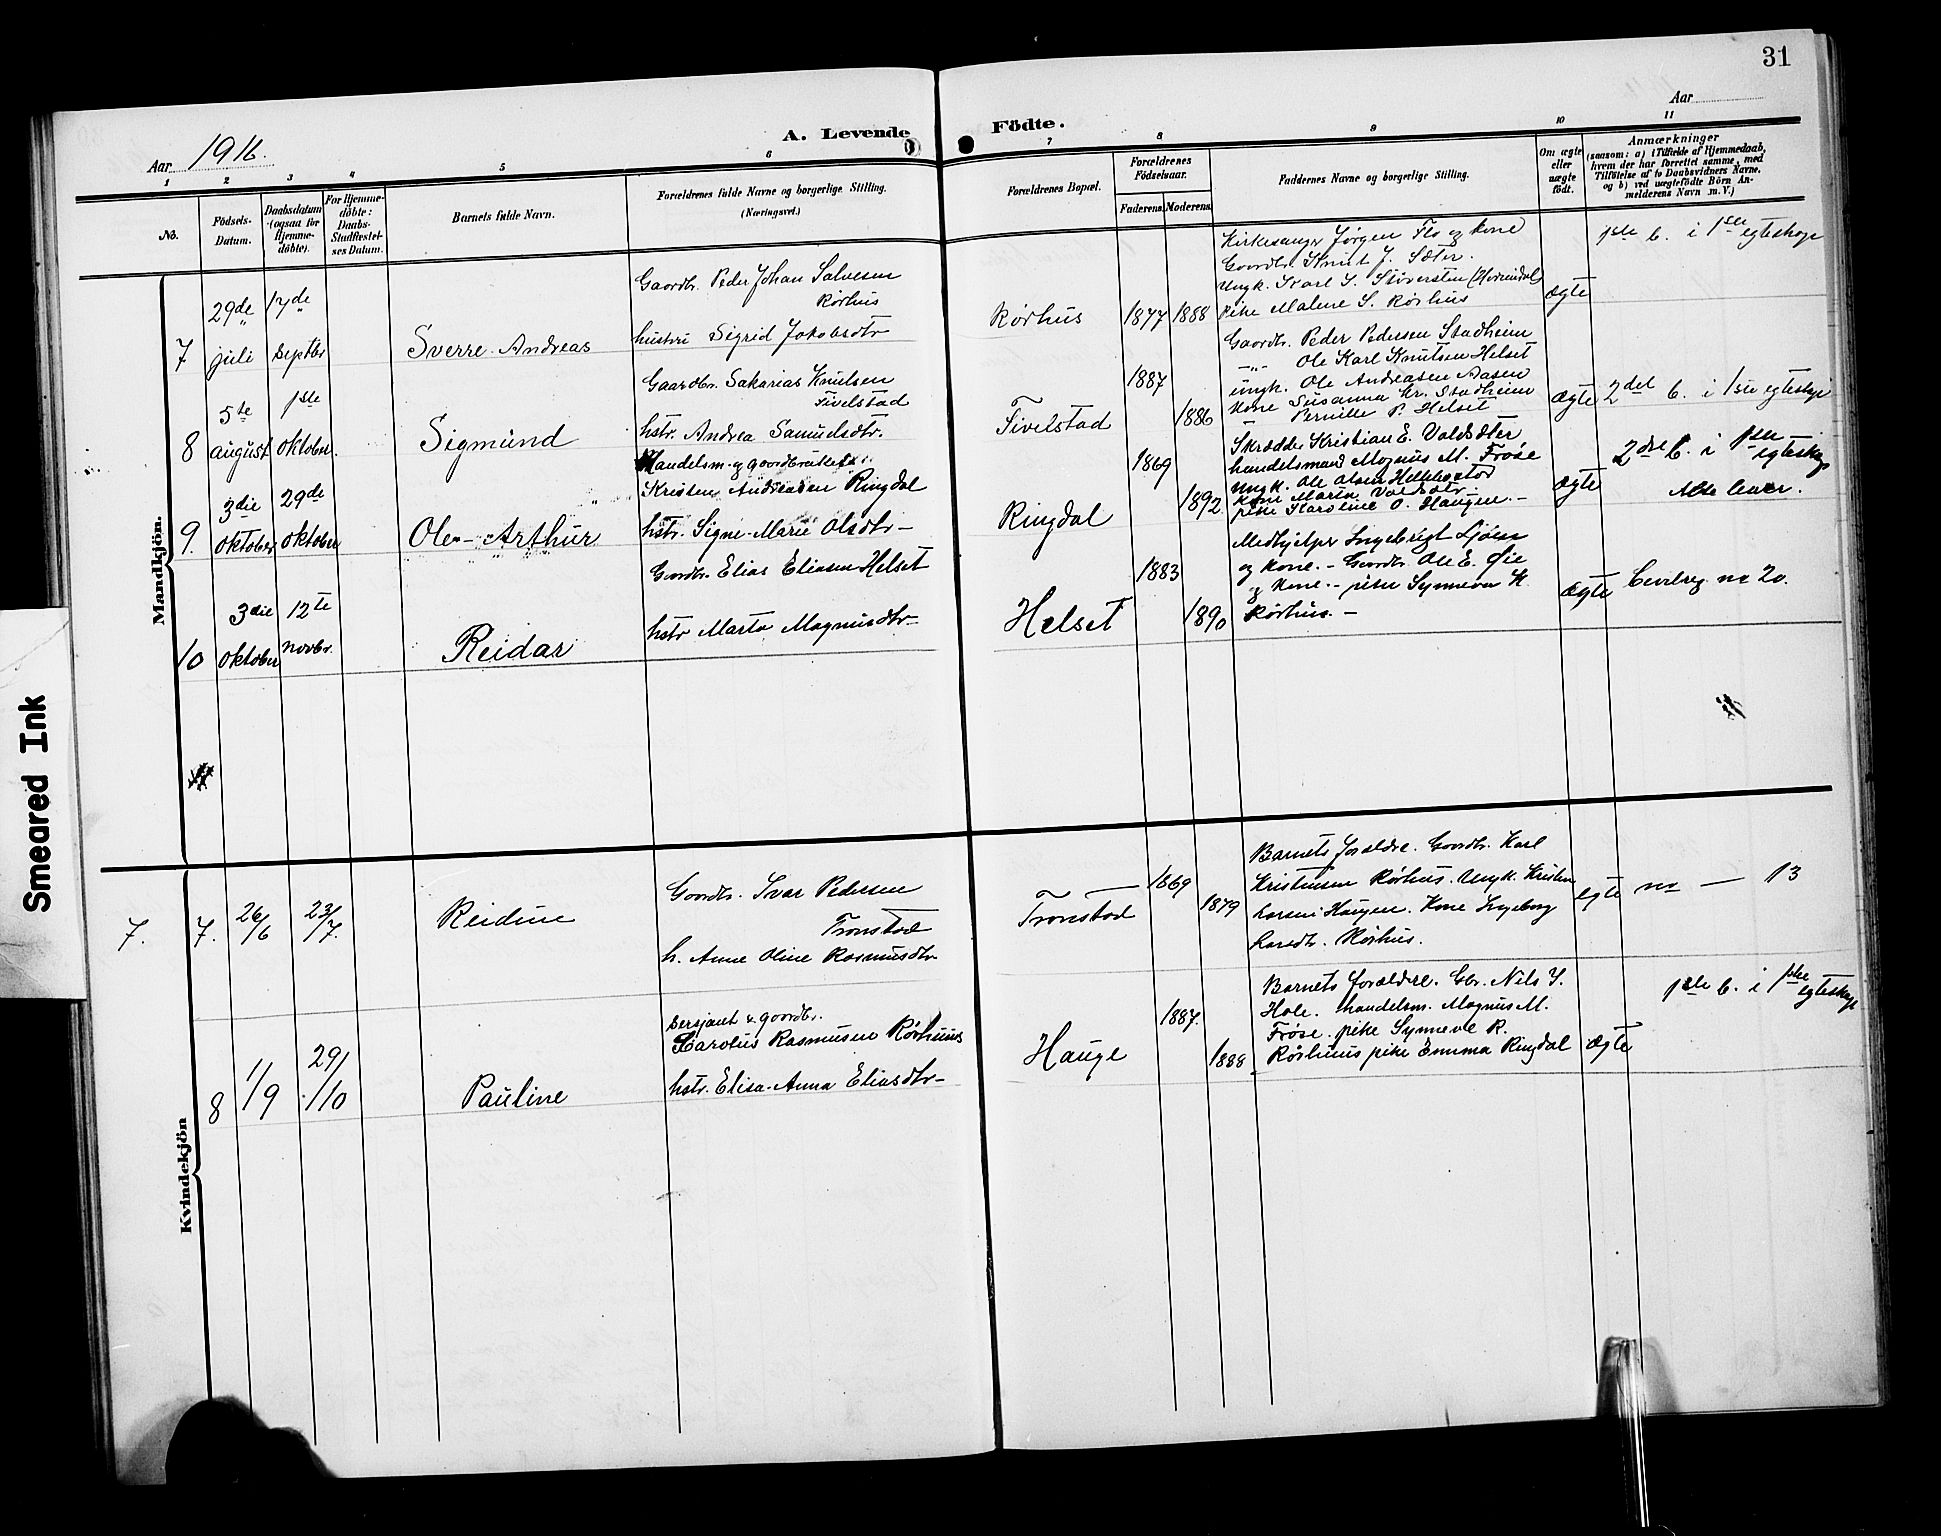 31
Aar 1916.
A. Levende Födte.
Aar
1 2 3 4 5 6 7 8 9 10 11
No.
Födsels-
Datum.
Daabsdatum
(ogsaa for
Hjemme-
döbte).
For Hjemme-
döbte:
Daabs-
Stadfæstel-
ses Datum.
Barnets fulde Navn.
Forældrenes fulde Navne og borgerlige Stilling.
(Næringsvei.)
Forældrenes Bopæl.
Forældrenes
Födselsaar.
Faderens. Moderens.
Faddernes Navne og borgerlige Stilling.
Om ægte
eller
uægte
födt.
Anmærkninger
(saasom: a) i Tilfælde af Hjemmedaab,
hvem der har forrettet samme, med
Tilföielse af to Daabsvidners Navne.
og b) ved uægtefödte Börn An-
melderens Navn m. V.)
Mandkjön.
7
29de juli
17de septbr
Sverre Andreas
Gaardbr. Peder Johan Salvesen
Rörhus
hustru Sigrid Jakobsdtr
Rørhus
1877 1888
Kirkesanger Jørgen Flo og kone
Gaardbr. Knut J. Sæter.
Ungk. Karl S. Støversten (Hornindal)
pike Malene S. Rørhus
ægte
1ste b. i 1ste egteskap
8
5te august
1ste oktober.
Sigmund
Gaardbr. Sakarias Knutsen
Fivelstad
hstr. Andrea Samuelsdtr.
Fivelstad
1887
1886
Gaardbr. Peder Pedersen Stadheim
-"- Ole Karl Knutsen Helset
ungk. Ole Andreasen Aasen
kone Susanna Kr. Stadheim
Pernille P. Helset
ægte
2det b. i 1ste egteskap
9.
3die oktober
29de oktober
Ole Arthur
Handelsm. og gaardbruker
Kristen Andreasen Ringdal
hstr. Signe Marie Olsdtr -
Ringdal
1869
1892.
Skrædder Kristian E. Valdsæter
handelsmand Magnus M. Frøse
Ungk. Ole Olsen
kone Marta
pike Karoline O. Haugen. -
ægte
2dre b. i 1ste egteskap
lever.
10
3die oktober
12te novbr.
Reidar
Gaardbr. Elias Eliasen Helset
hstr Marta Magnusdtr -
Helset
1883
1890
Medhjelper Ingebrigt Ljøen
og kone. - Gaardbr. Ole E. Øie
og kone. - pike Synneva K
Rørhus. -
ægte
Civilreg. no 20.
Kvindekjön
7.
7.
26/6
23/7.
Reidine
Gaardb. Ivar Pedersen
Tronstad
h. Anne Oline Rasmusdtr
Tronstad
1869
1879
Barnets forældre. Gaardbr. Karl
Kristensen Rørhus. Ungk. Kristen
Larsen Haugen. Kone Ingeborg
Larsdtr. Rørhus.
egte
no — 13
8
11/9
29/10
Pauline
Sersjant & gaardbr.
Karolus Rasmusen Rørhuus
hstr. Elisa Anna Eliasdtr -
Hauge
1887.
1888
Barnets forældre. Gbr. Nils I.
Hole. handelsm. Magnus M.
Frøse. pike Synneve R.
Rørhuus pike Emma Ringdal
ægte
1ste b. i 1ste egteskap
Smeared Ink